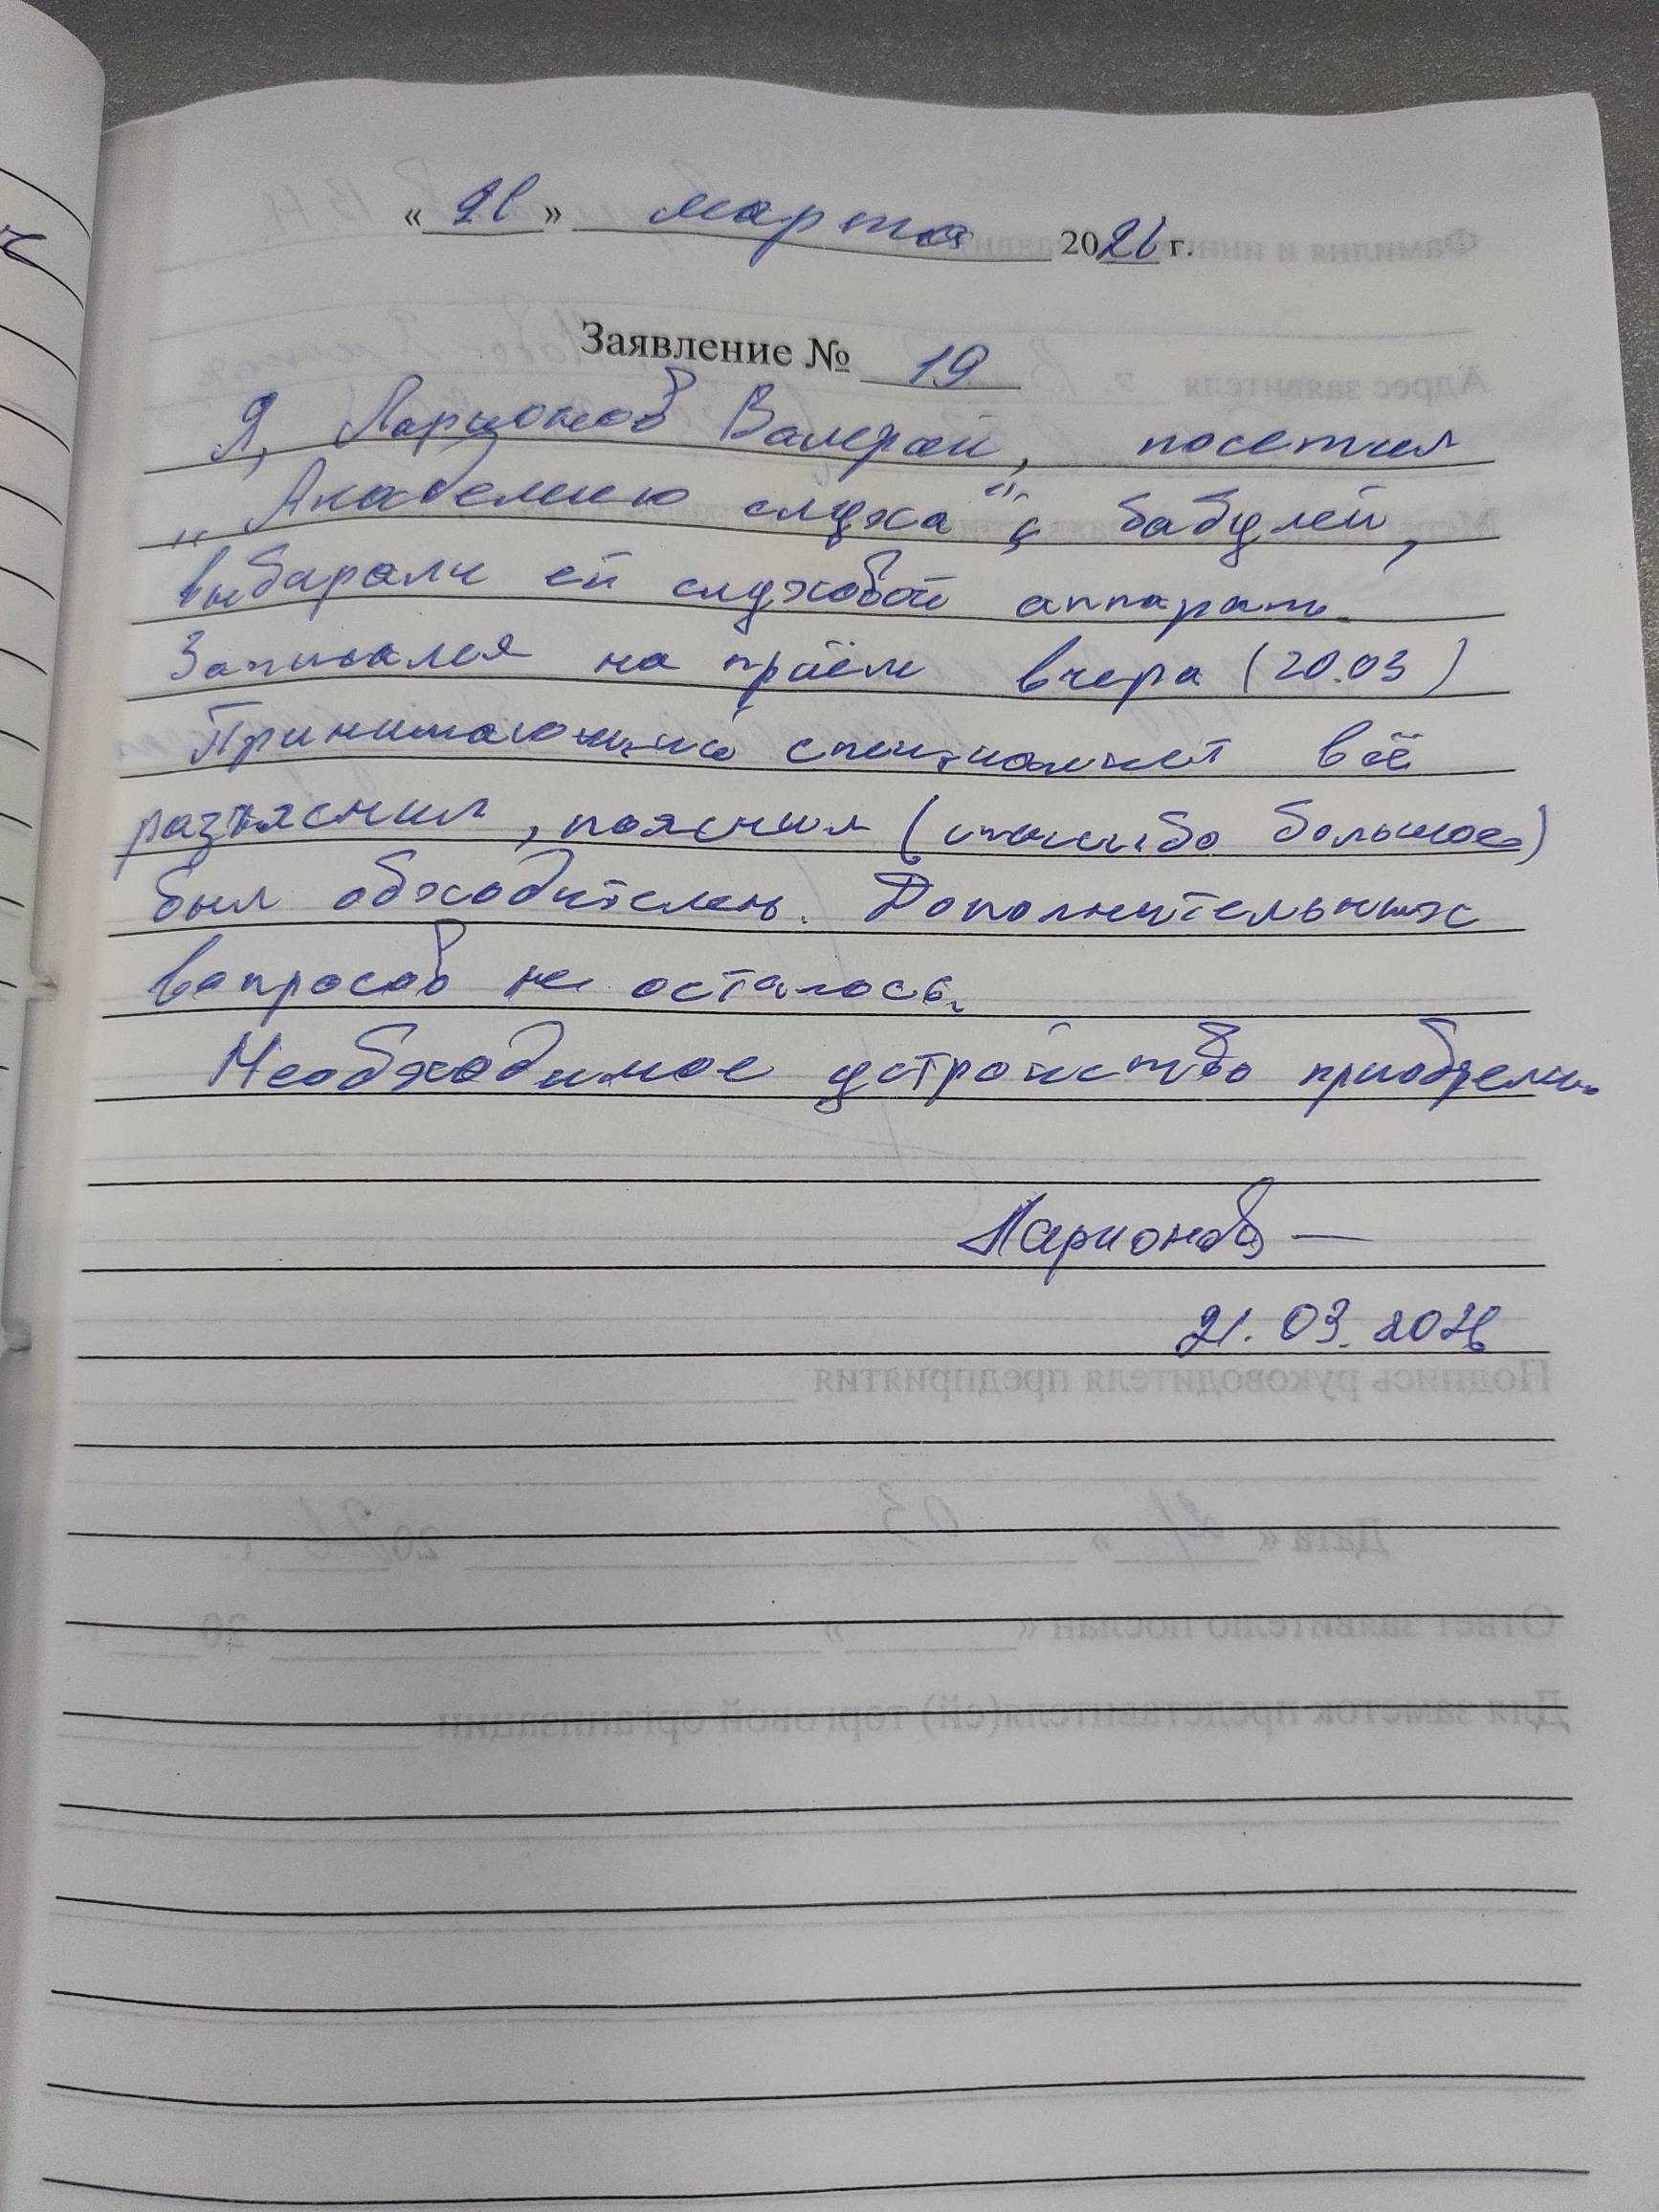 «21» марта 2026 г.
Заявление № 19
Я, Ларионов Валерий, посетил
„Академию слуха" с бабулей,
выбирали ей слуховой аппарат.
Записался на приём вчера (20.03)
Принимающий специалист всё
разъяснил, пояснил (спасибо большое)
был обходителен. Дополнительных
вопросов не осталось.
Необходимое устройство приобрели.
Ларионов
21.03.2026